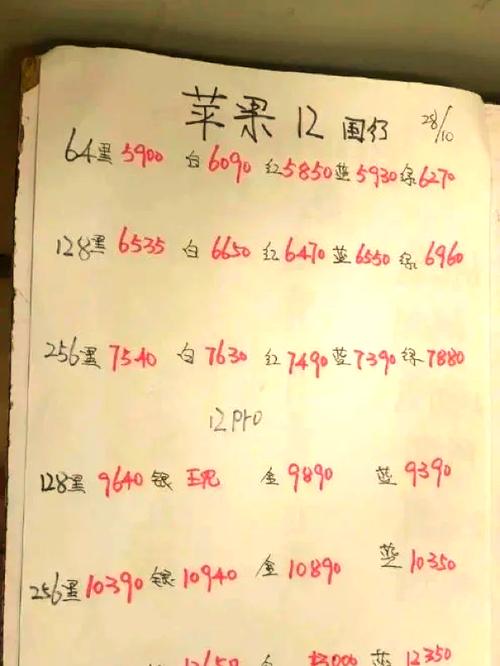 苹果 12 国行 28/10
64黑 5900 白 6090 红 5850 蓝 5930 绿 6270
128黑 6535 白 6650 红 6470 蓝 6550 绿 6960
256黑 7540 白 7630 红 7490 蓝 7390 绿 7880
12 Pro
128黑 9640 银 金 9890 蓝 9390
256黑 10390 银 10940 金 10890 蓝 10350
12350